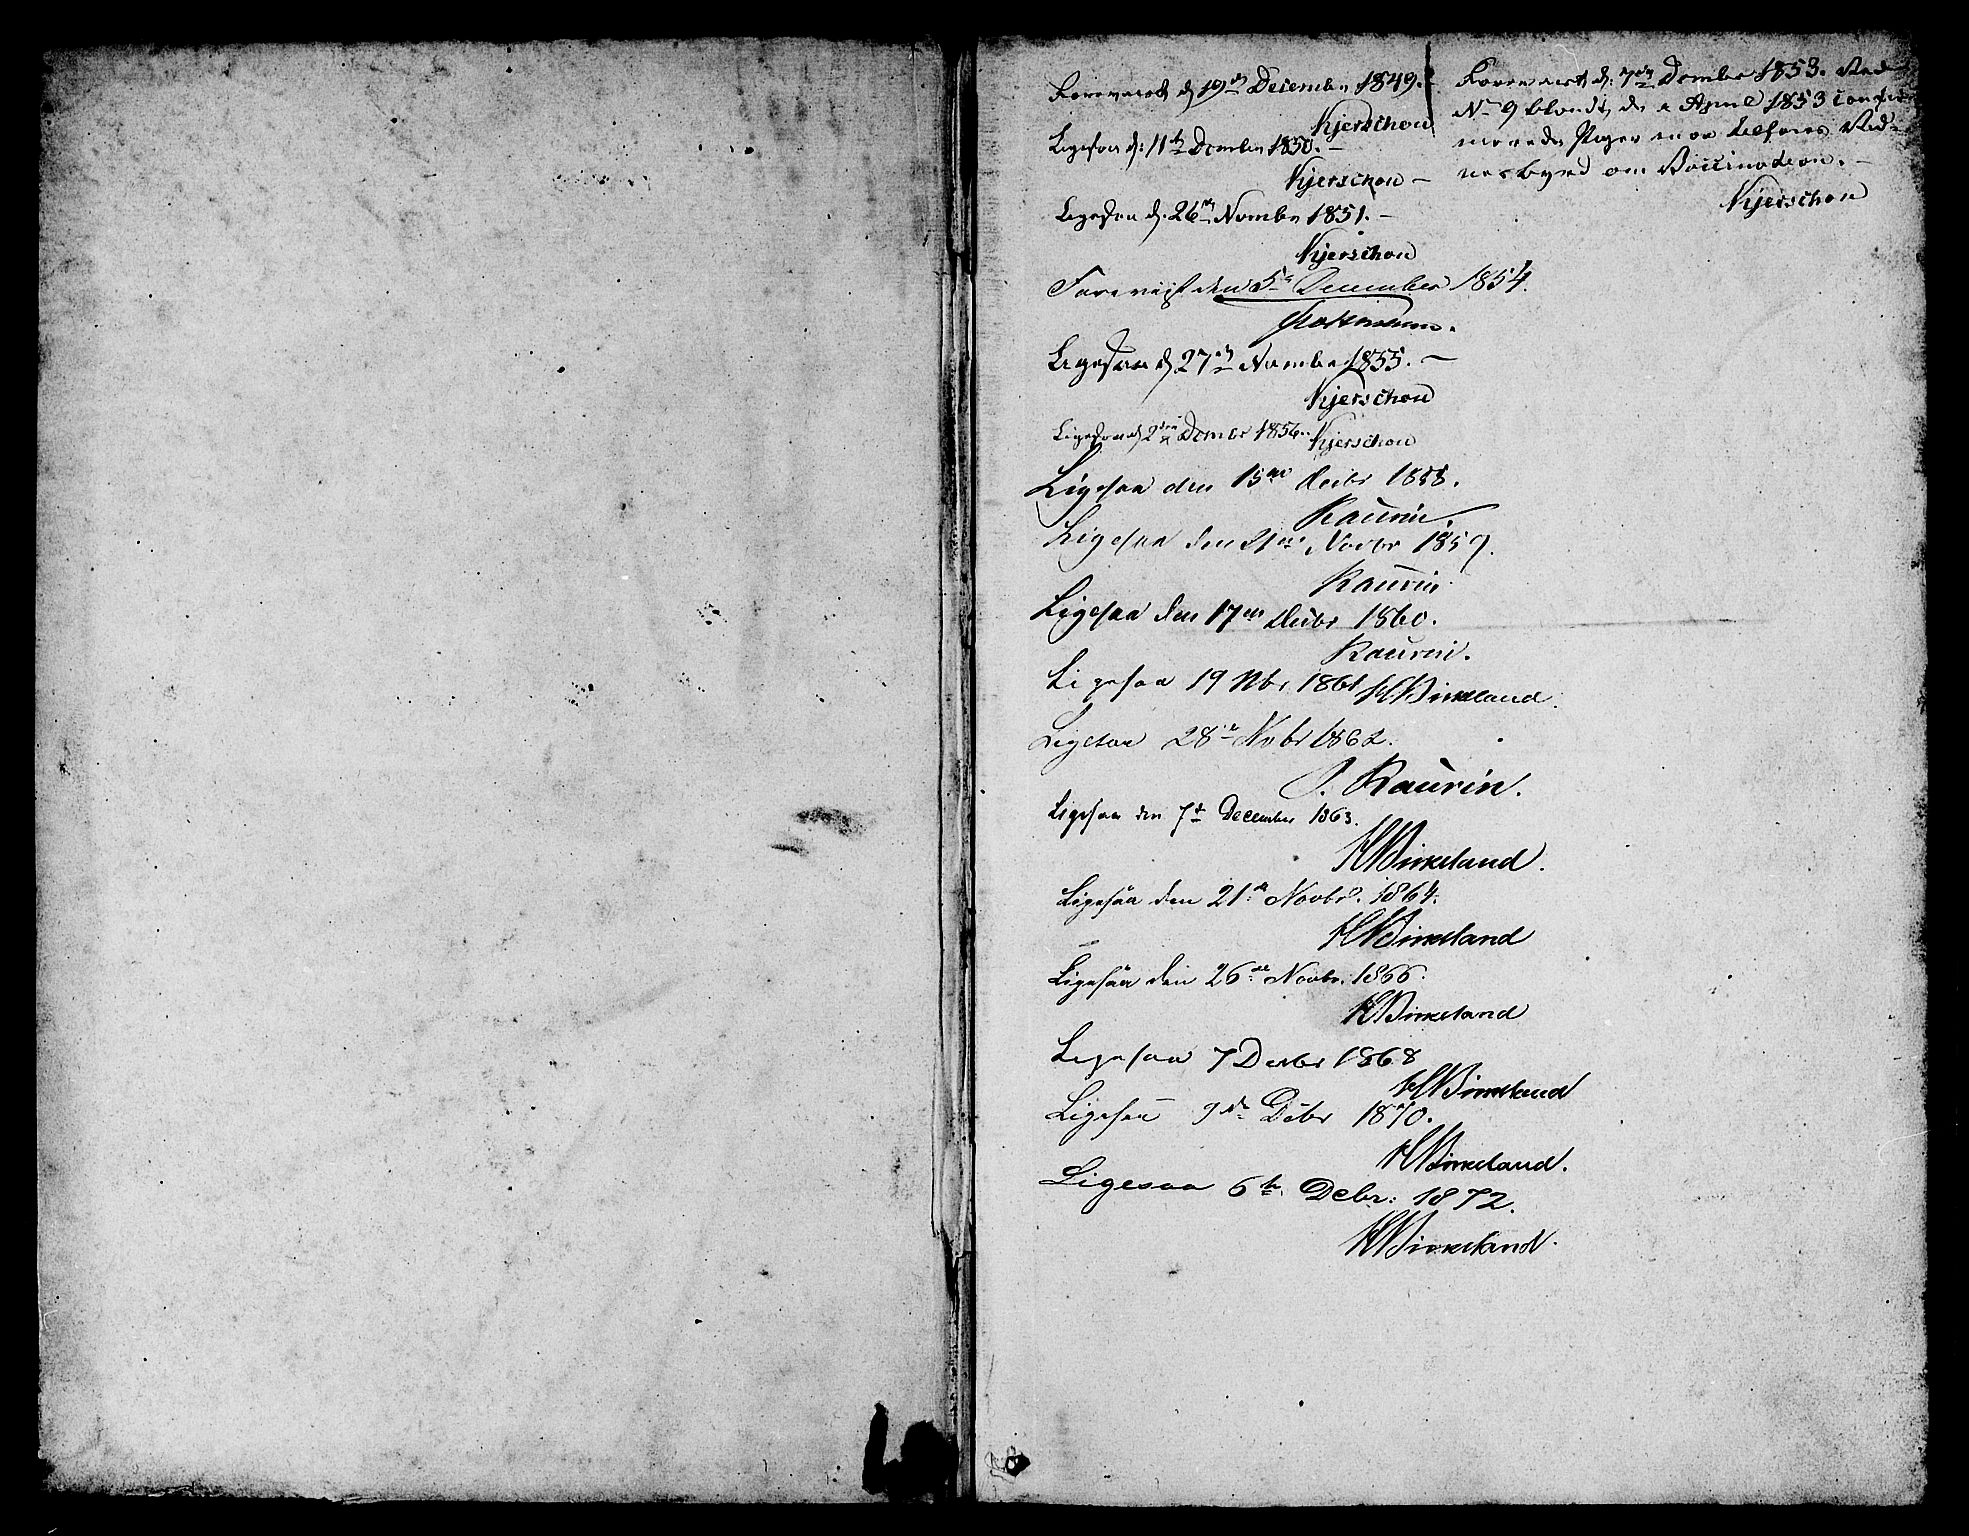 Foreviist d. 19de December 1849. –
Kjerschou
Ligesaa d: 11te Decembr 1850. –
Kjerschou –
Ligesaa d. 26de Novembr 1851. –
Kjerschou
Foreviist den 5te December 1854.
Ligesaa d. 27de Novembr 1855. –
Kjerschou
Ligesaa d. 2den Decembr 1856. Kjerschou
Ligesaa den 15de Decbr 1858.
Kaurin.
Ligesaa den 21de Novbr 1859.
Kaurin
Ligesaa den 17de Decbr 1860.
Kaurin.
Ligesaa 19 Nbr. 1861 HBirkeland.
Ligesaa 28de Novbr 1862.
J. Kaurin.
Ligesaa den 7de December 1863.
HBirkeland.
Ligesaa den 21de Novbr. 1864.
HBirkeland
Ligesaa den 26de Novbr. 1866.
HBirkeland
Ligesaa 7 Decbr 1868
HBirkeland
Ligesaa 7de Decbr 1870.
HBirkeland.
Ligesaa 6te Debr: 1872.
HBirkeland.
Foreviist d: 7de Decembr 1853. Ved
No 9 blandt de i April 1853 confir-
merede Piger maa tilføies Vid-
nesbyrd om Vaccination. –
Kjerschou